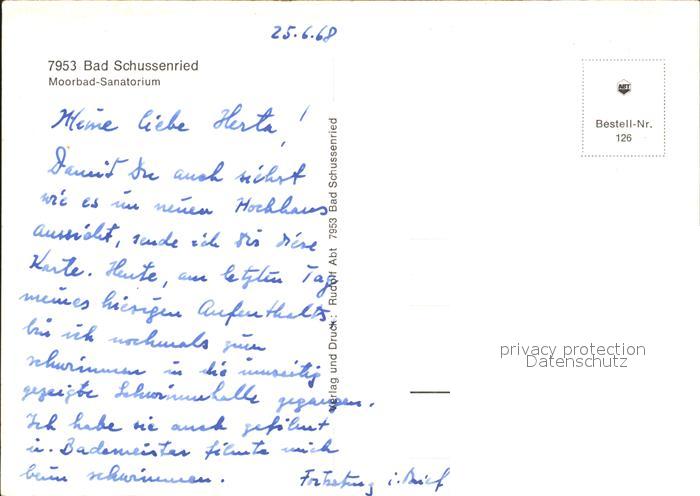 25.6.68
7953 Bad Schussenried
Moorbad-Sanatorium
Meine liebe Herta!
Damit Du auch siehst
wie es im neuen Hochhaus
aussieht, sende ich Dir diese
Karte. Heute, am letzten Tag
meines hiesigen Aufenthalts,
bin ich nochmals zum
schwimmen in die umseitig
gezeigte Schwimmhalle gegangen.
Ich habe sie auch gefilmt
u. Bademeister filmte mich
beim schwimmen.
Fortsetzung i. Brief
Verlag und Druck: Rudolf Abt 7953 Bad Schussenried
ABT
Bestell-Nr.
126
privacy protection
Datenschutz